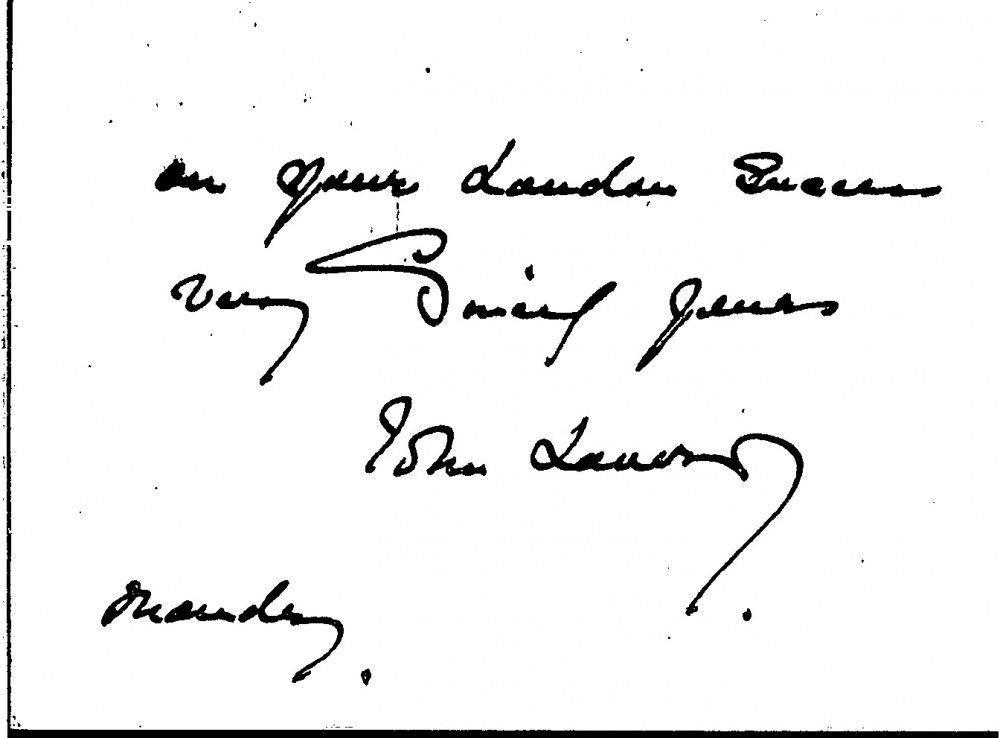 on your London Success
Very Sincerely Yours
John Lavery.
Monday.